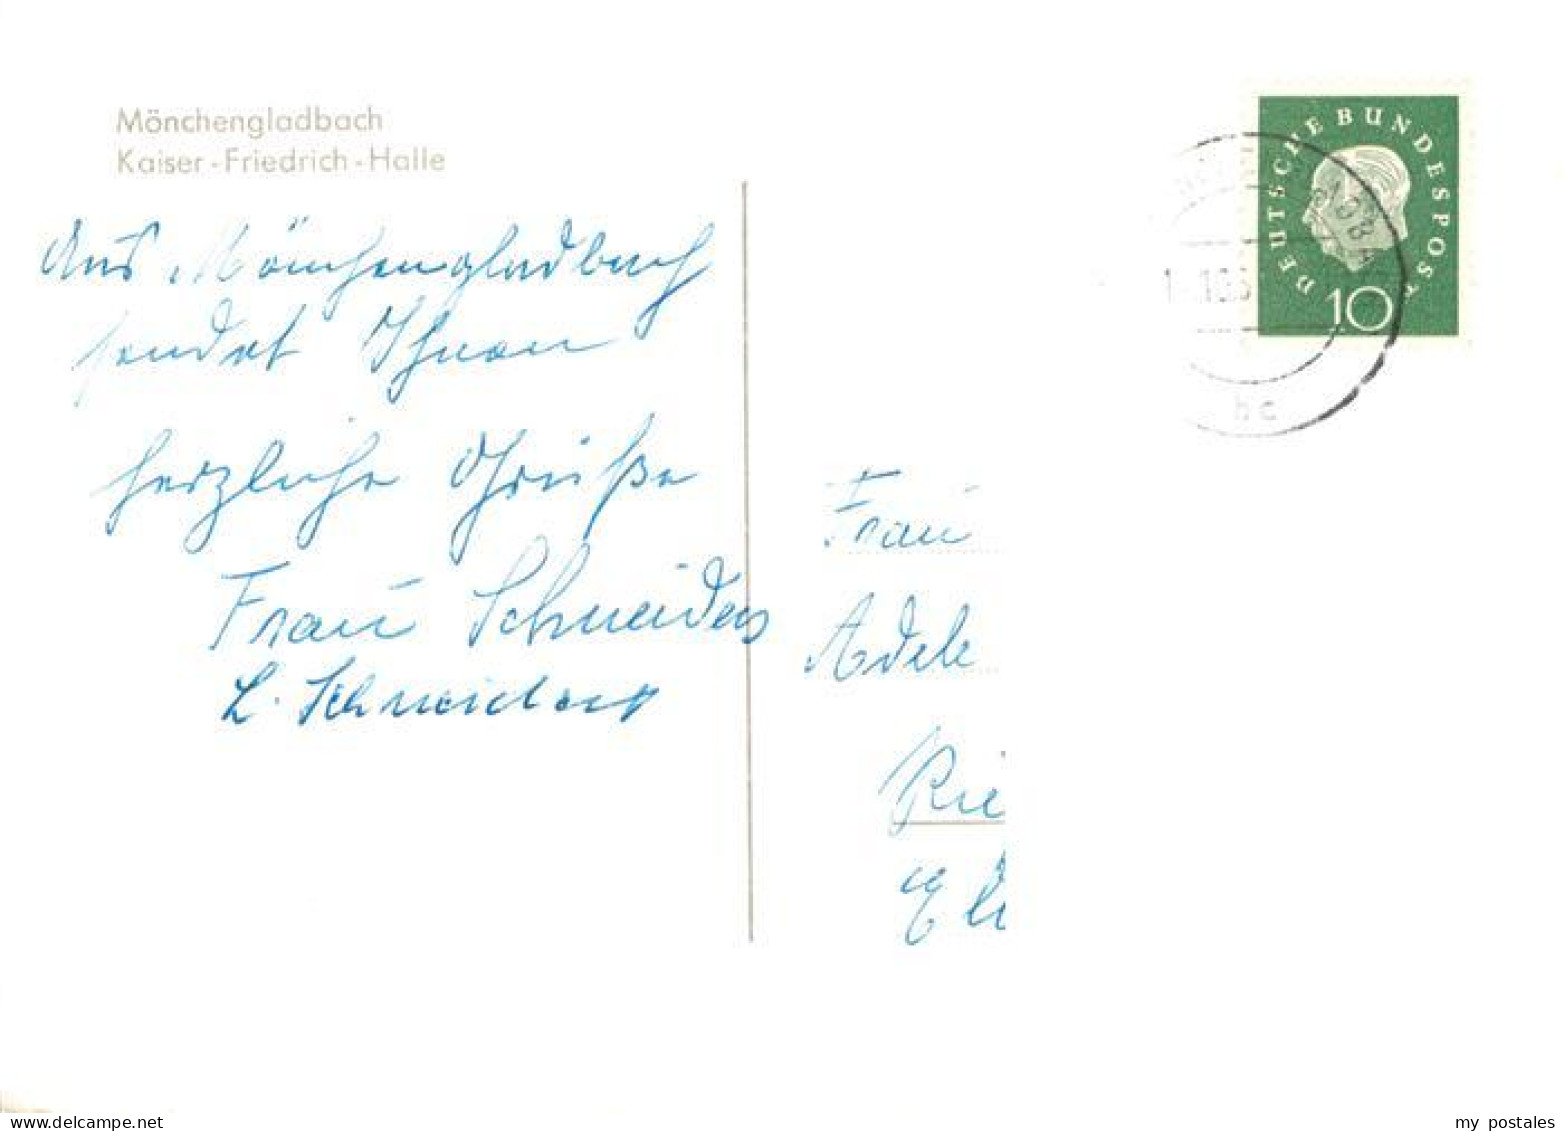 Mönchengladbach
Kaiser-Friedrich-Halle
Aus Mönchengladbach
sendet Ihnen
herzliche Grüße
Frau Schneiders
L. Schneiders
DEUTSCHE BUNDESPOST
10
hc
Frau
Adele
Rie
delcampe.net
my postales